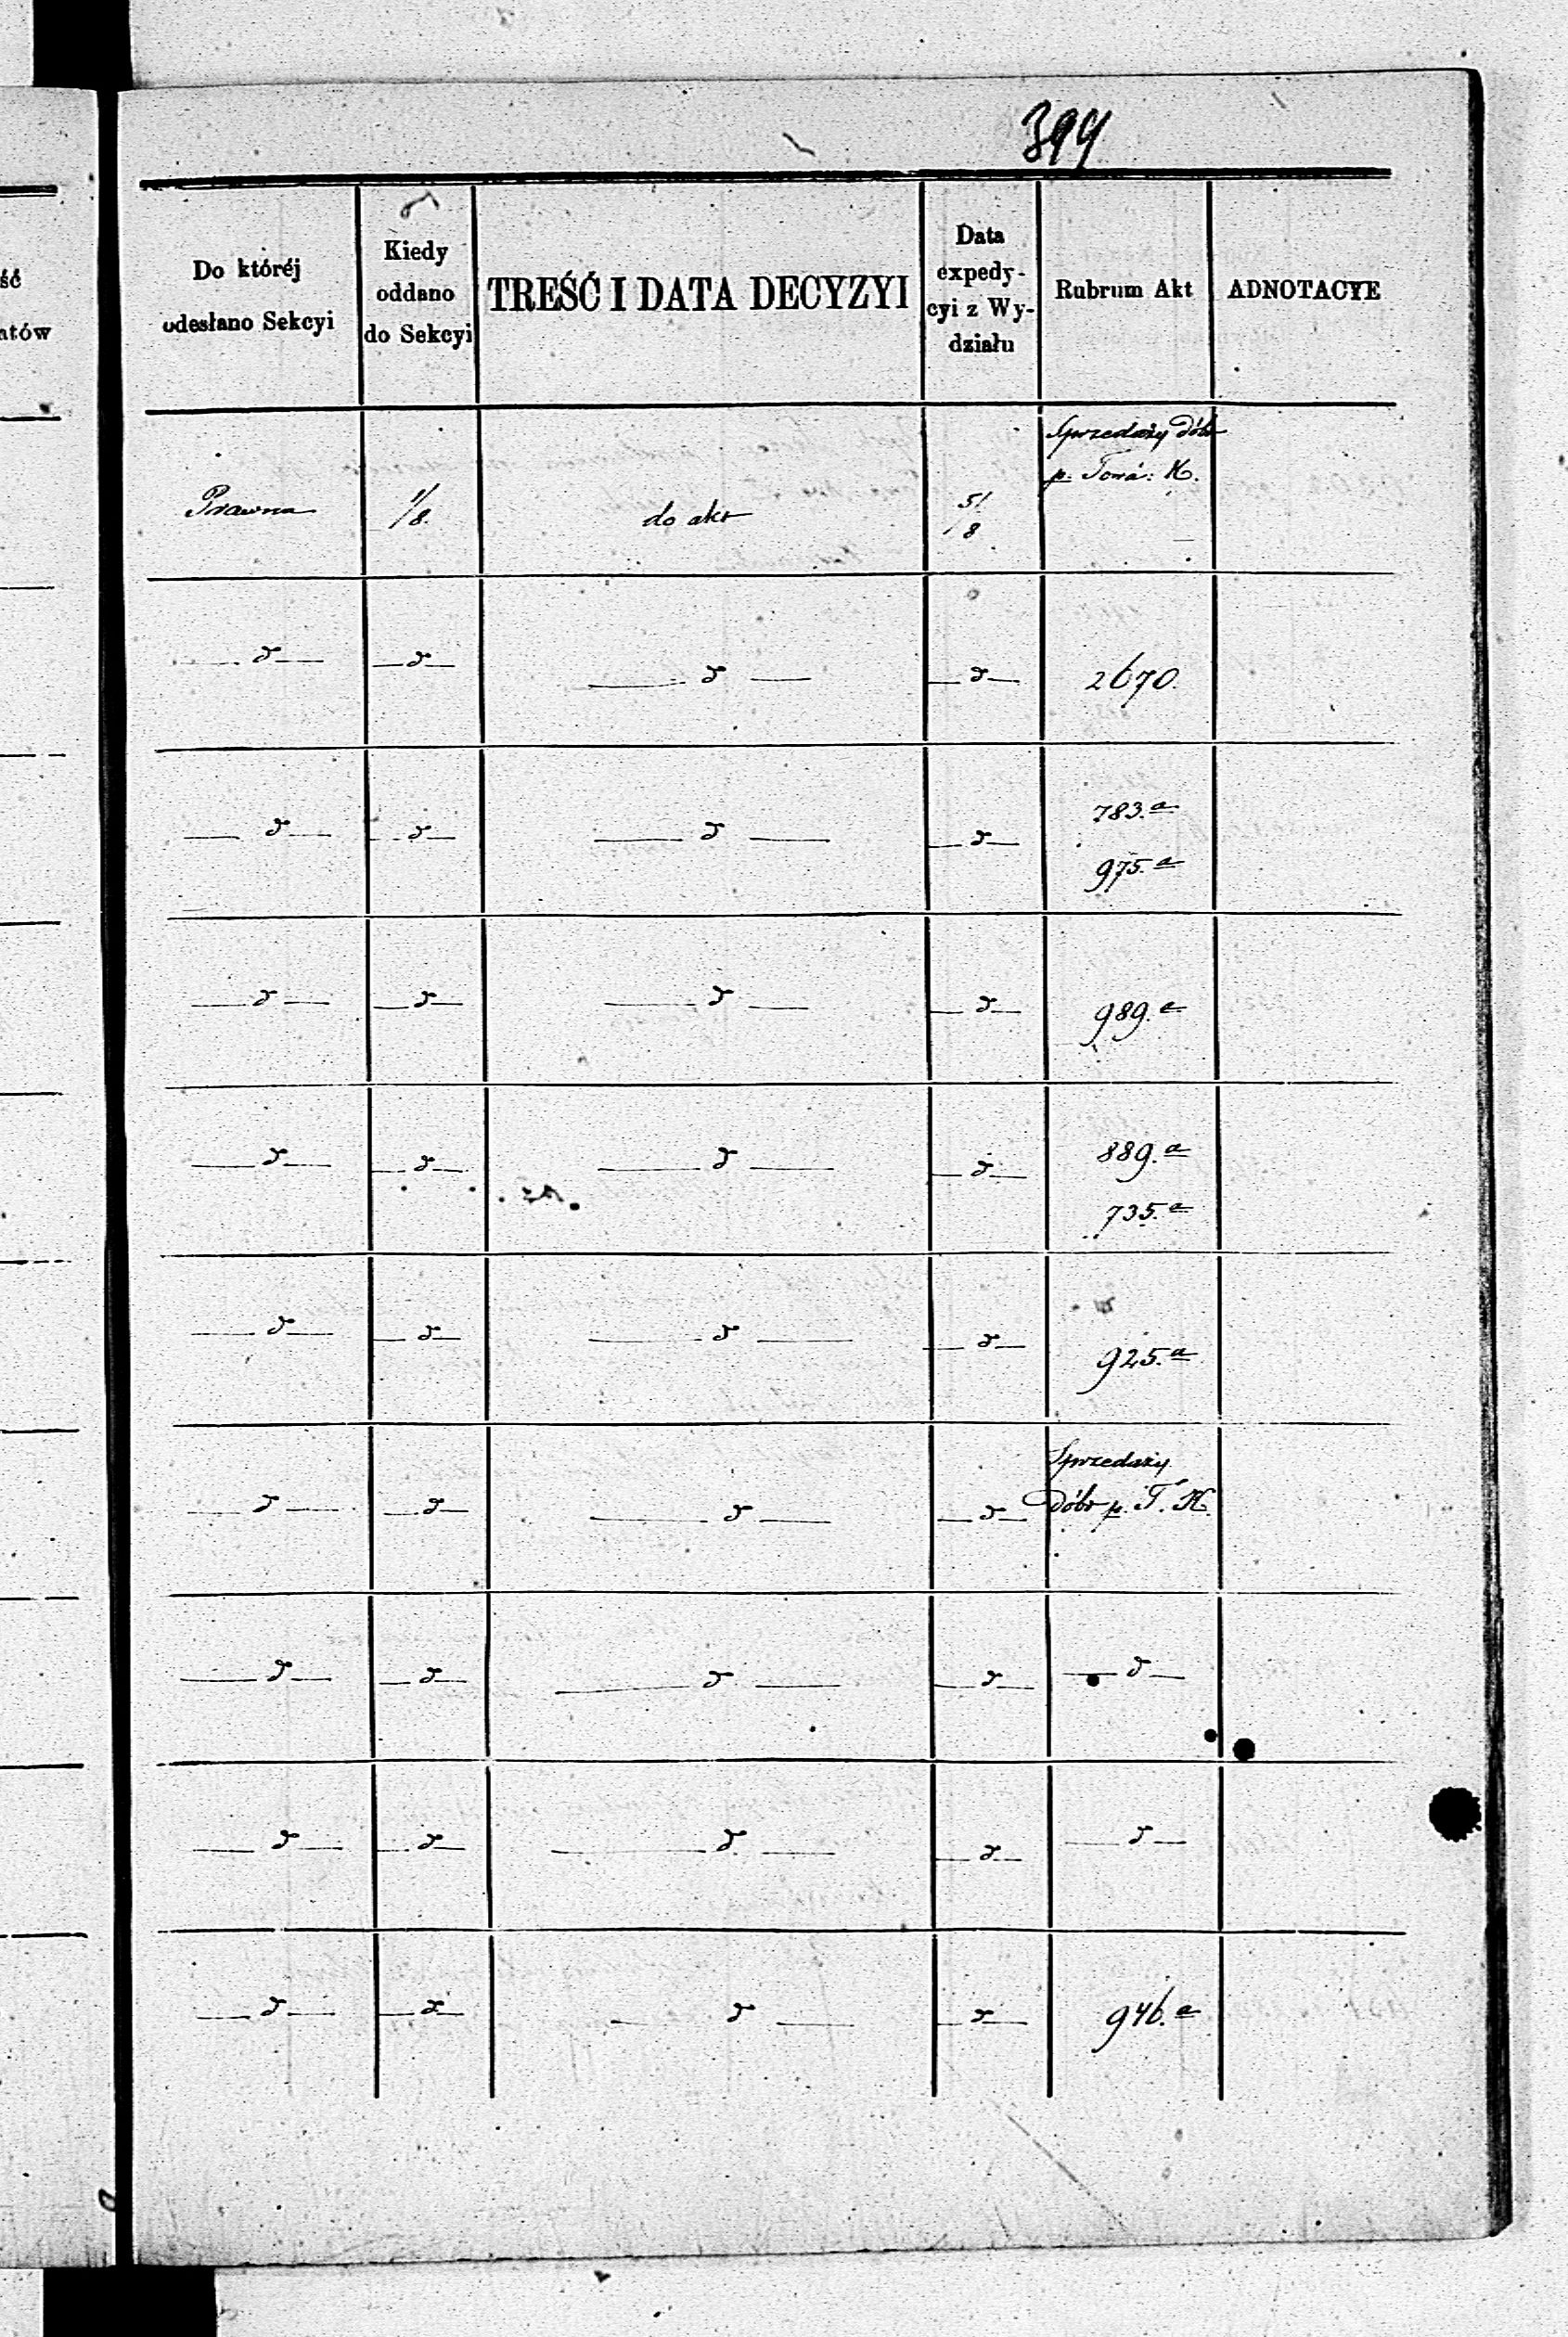 394
ść
atów
Do któréj
odesłano Sekcyi
Kiedy
oddano
do Sekcyi
TREŚĆ I DATA DECYZYI
Data
expedy-
cyi z Wy-
działu
Rubrum Akt
ADNOTACYE
Sprzedaży dóbr
p. Towa: K.
Prawna 1/8. do akt 5/8
—d— —d— —d— —d— 2670.
783.a
—d— —d— —d— —d—
975.a
—d— —d— —d— —d— 989.a
—d— —d— —d— —d— 889.a
735.a
—d— —d— —d— —d— 925.a
Sprzedaży
—d— —d— —d— —d— dóbr p. T. K.
—d— —d— —d— —d— —d—
—d— —d— —d— —d— —d—
—d— —d— —d— —d— 946.a